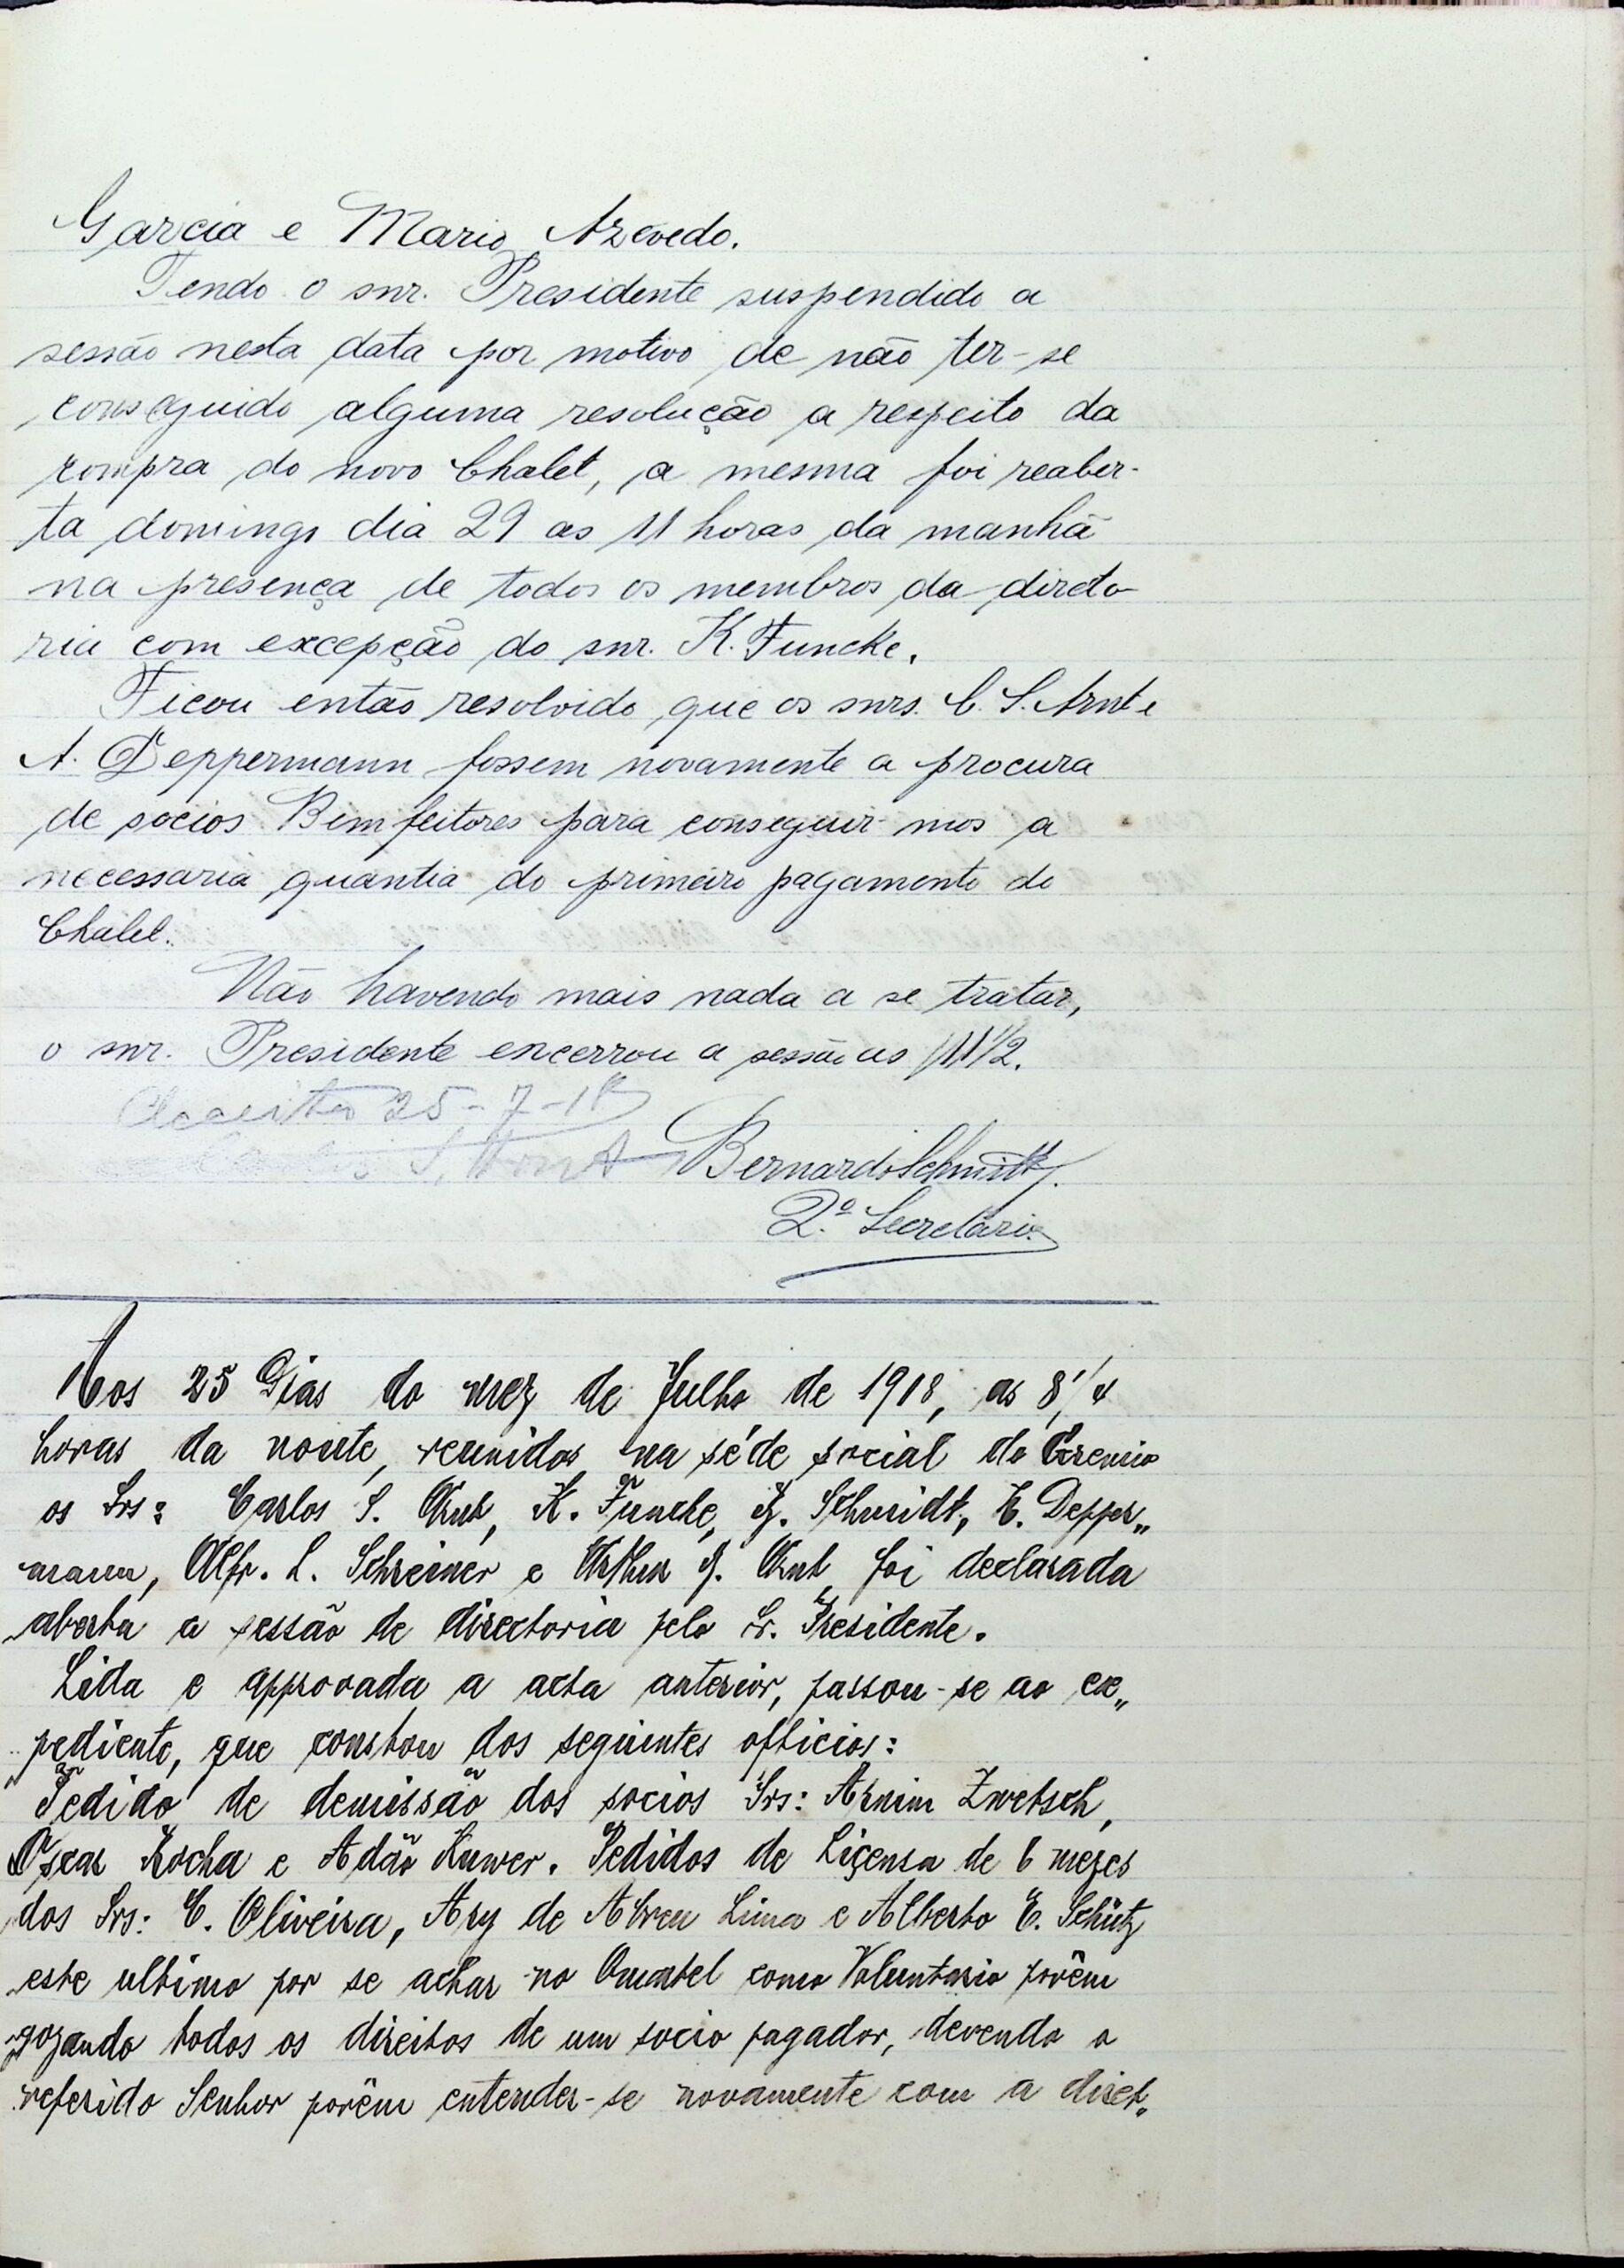 Garcia e Mario Azevedo.
Tendo o snr. Presidente suspendido a
sessão nesta data por motivo de não ter-se
conseguido alguma resolução a respeito da
compra do novo Chalet, a mesma foi reaber-
ta domingo dia 29 as 11 horas da manhã
na presença de todos os membros da directo-
ria com excepção do snr. K. Funcke.
Ficou então resolvido que os snrs. C. S. Arnt e
A. Deppermann fossem novamente a procura
de socios Bemfeitores para conseguir-mos a
necessaria quantia do primeiro pagamento do
Chalet.
Não havendo mais nada a se tratar,
o snr. Presidente encerrou a sessão as 11 1/2.
Acceito 25-7-18
Carlos S. Arnt Bernardo Schmitt
2º Secretario
Aos 25 Dias do mez de Julho de 1918, as 8 1/4
horas da noute, reunidos na séde social do Gremio
os Srs: Carlos S. Arnt, K. Funcke, Schmidt, E. Depper„
mann, Alfr. L. Schreiner e Arthur J. Arnt foi declarada
aberta a sessão de directoria pelo Sr. Presidente.
Lida e approvada a acta anterior, passou-se ao ex„
pediente, que constou dos seguintes officios:
Pedido de demissão dos socios Srs: Arnim Zwetsch,
Oscar Rocha e Adão Kuwer. Pedidos de Liçensa de 6 mezes
dos Srs: E. Oliveira, Ary de Abreu Lima e Alberto E. Schütz
este ultimo por se achar no Quartel como Voluntario porêm
gozando todos os direitos de um socio pagador, devendo o
referido Senhor porêm entender-se novamente com a direct„